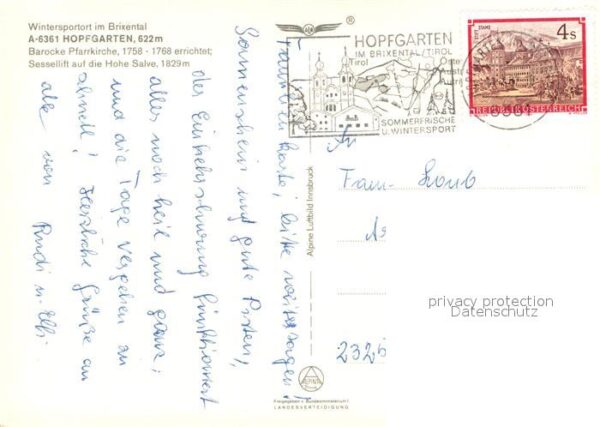 Wintersportort im Brixental
A-6361 HOPFGARTEN, 622m
Barocke Pfarrkirche, 1758 - 1768 errichtet;
Sessellift auf die Hohe Salve, 1829m
®
HOPFGARTEN
IM BRIXENTAL/TIROL
Tirol
SOMMERFRISCHE
U. WINTERSPORT
4 S
REPUBLIK ÖSTERREICH
Karte, bitte
Sonnenschein und gute Pisten,
der Einkehrschwung funktioniert
alles noch heil und ganz,
und die Tage vergehen zu
schnell! Herzliche Grüße an
alle von Rudi u. Elfi
Alpine Luftbild Innsbruck
Freigegeben v. Bundesministerium f.
LANDESVERTEIDIGUNG
An
Fam.
2325
privacy protection
Datenschutz